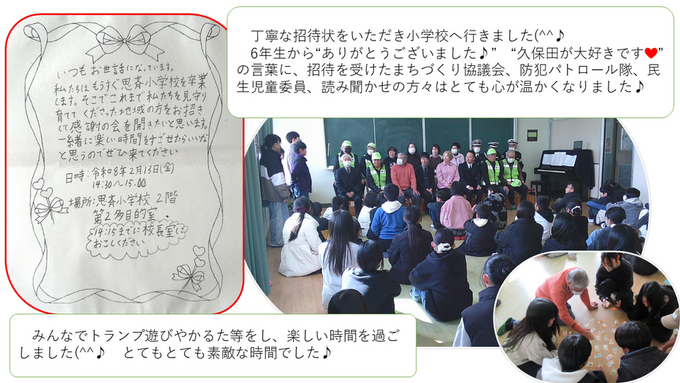 いつもお世話になっています。
私たちはもうすぐ思斉小学校を卒業
します。そこでこれまで私たちを見守り
育ててくださった地域の方をお招き
して感謝の会を開きたいと思います。
一緒に楽しい時間を過ごせたらいいな
と思うのでぜひ来てください
日時:令和8年2月13日(金)
14:30〜15:00
場所:思斉小学校 2階
第2多目的室
14:25までに校長室に
おこしください
丁寧な招待状をいただき小学校へ行きました(^^♪
6年生から“ありがとうございました♪” “久保田が大好きです❤”
の言葉に、招待を受けたまちづくり協議会、防犯パトロール隊、民
生児童委員、読み聞かせの方々はとても心が温かくなりました♪
みんなでトランプ遊びやかるた等をし、楽しい時間を過ご
しました(^^♪ とてもとても素敵な時間でした♪